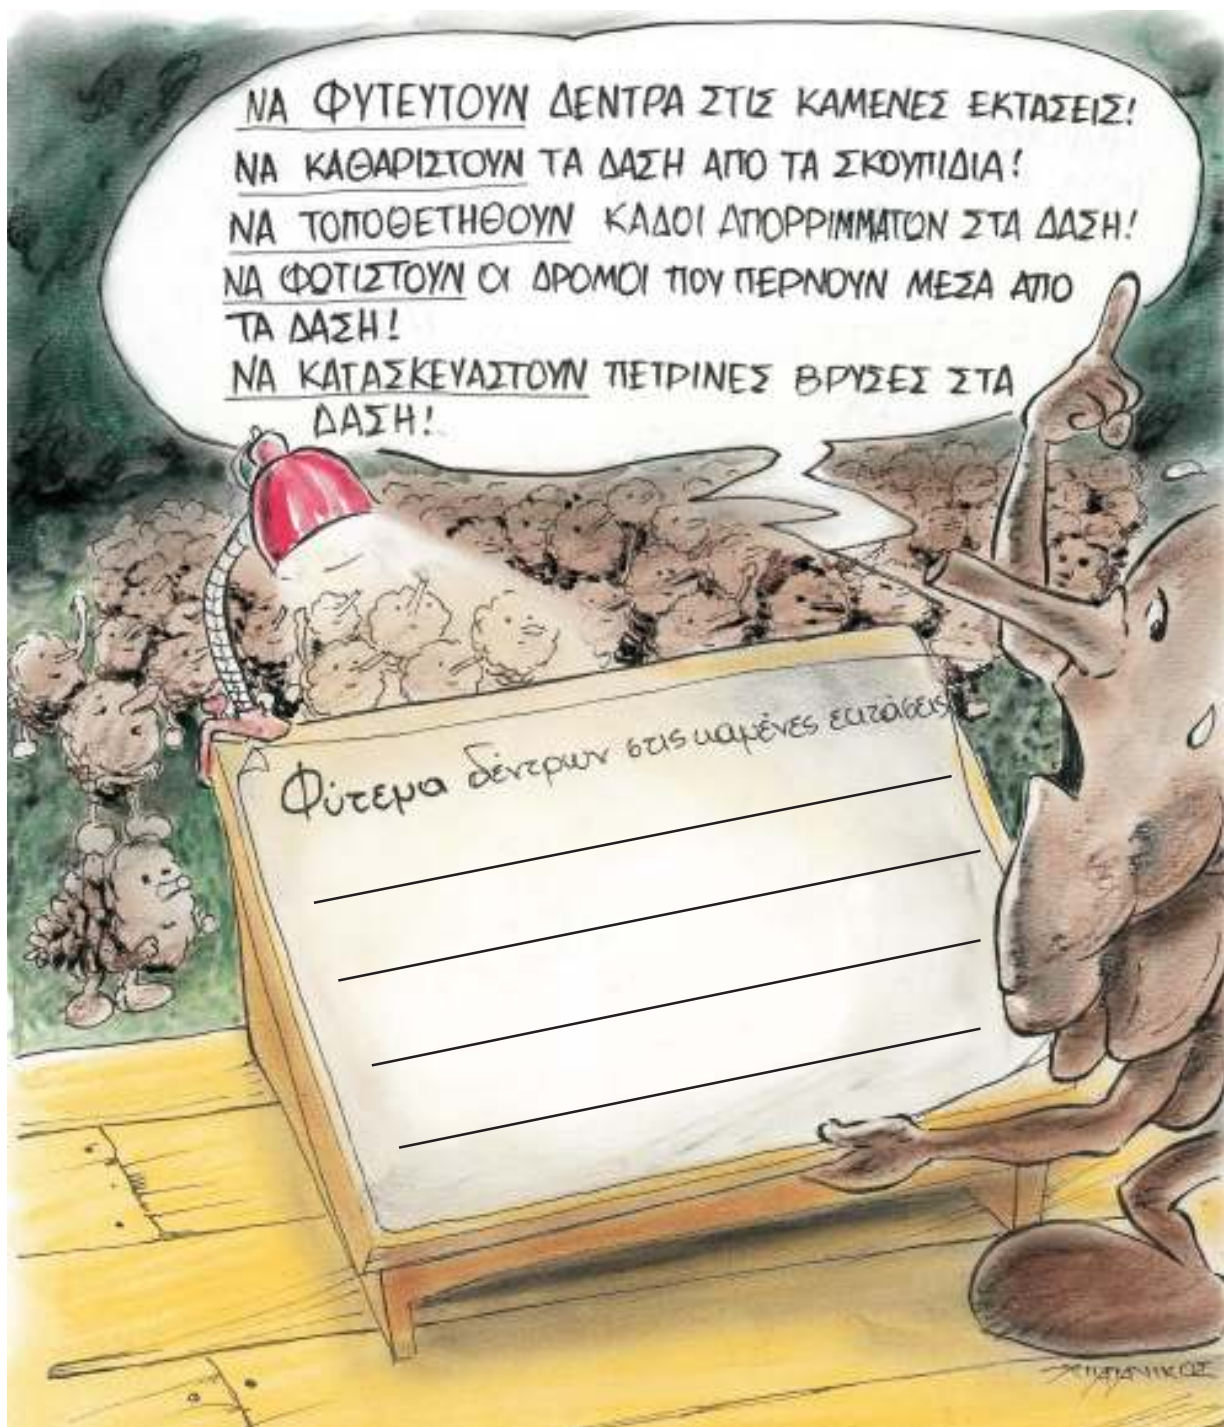 ΝΑ ΦΥΤΕΥΤΟΥΝ ΔΕΝΤΡΑ ΣΤΙΣ ΚΑΜΕΝΕΣ ΕΚΤΑΣΕΙΣ!
ΝΑ ΚΑΘΑΡΙΣΤΟΥΝ ΤΑ ΔΑΣΗ ΑΠΟ ΤΑ ΣΚΟΥΠΙΔΙΑ!
ΝΑ ΤΟΠΟΘΕΤΗΘΟΥΝ ΚΑΔΟΙ ΑΠΟΡΡΙΜΜΑΤΩΝ ΣΤΑ ΔΑΣΗ!
ΝΑ ΦΩΤΙΣΤΟΥΝ ΟΙ ΔΡΟΜΟΙ ΠΟΥ ΠΕΡΝΟΥΝ ΜΕΣΑ ΑΠΟ
ΤΑ ΔΑΣΗ!
ΝΑ ΚΑΤΑΣΚΕΥΑΣΤΟΥΝ ΠΕΤΡΙΝΕΣ ΒΡΥΣΕΣ ΣΤΑ
ΔΑΣΗ!
Φύτεμα δέντρων στις καμένες εκτάσεις